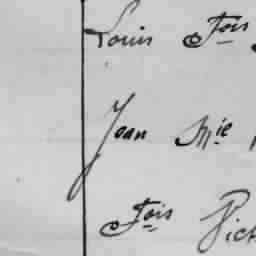 Louis Fois
Jean Mie
Fois Pict